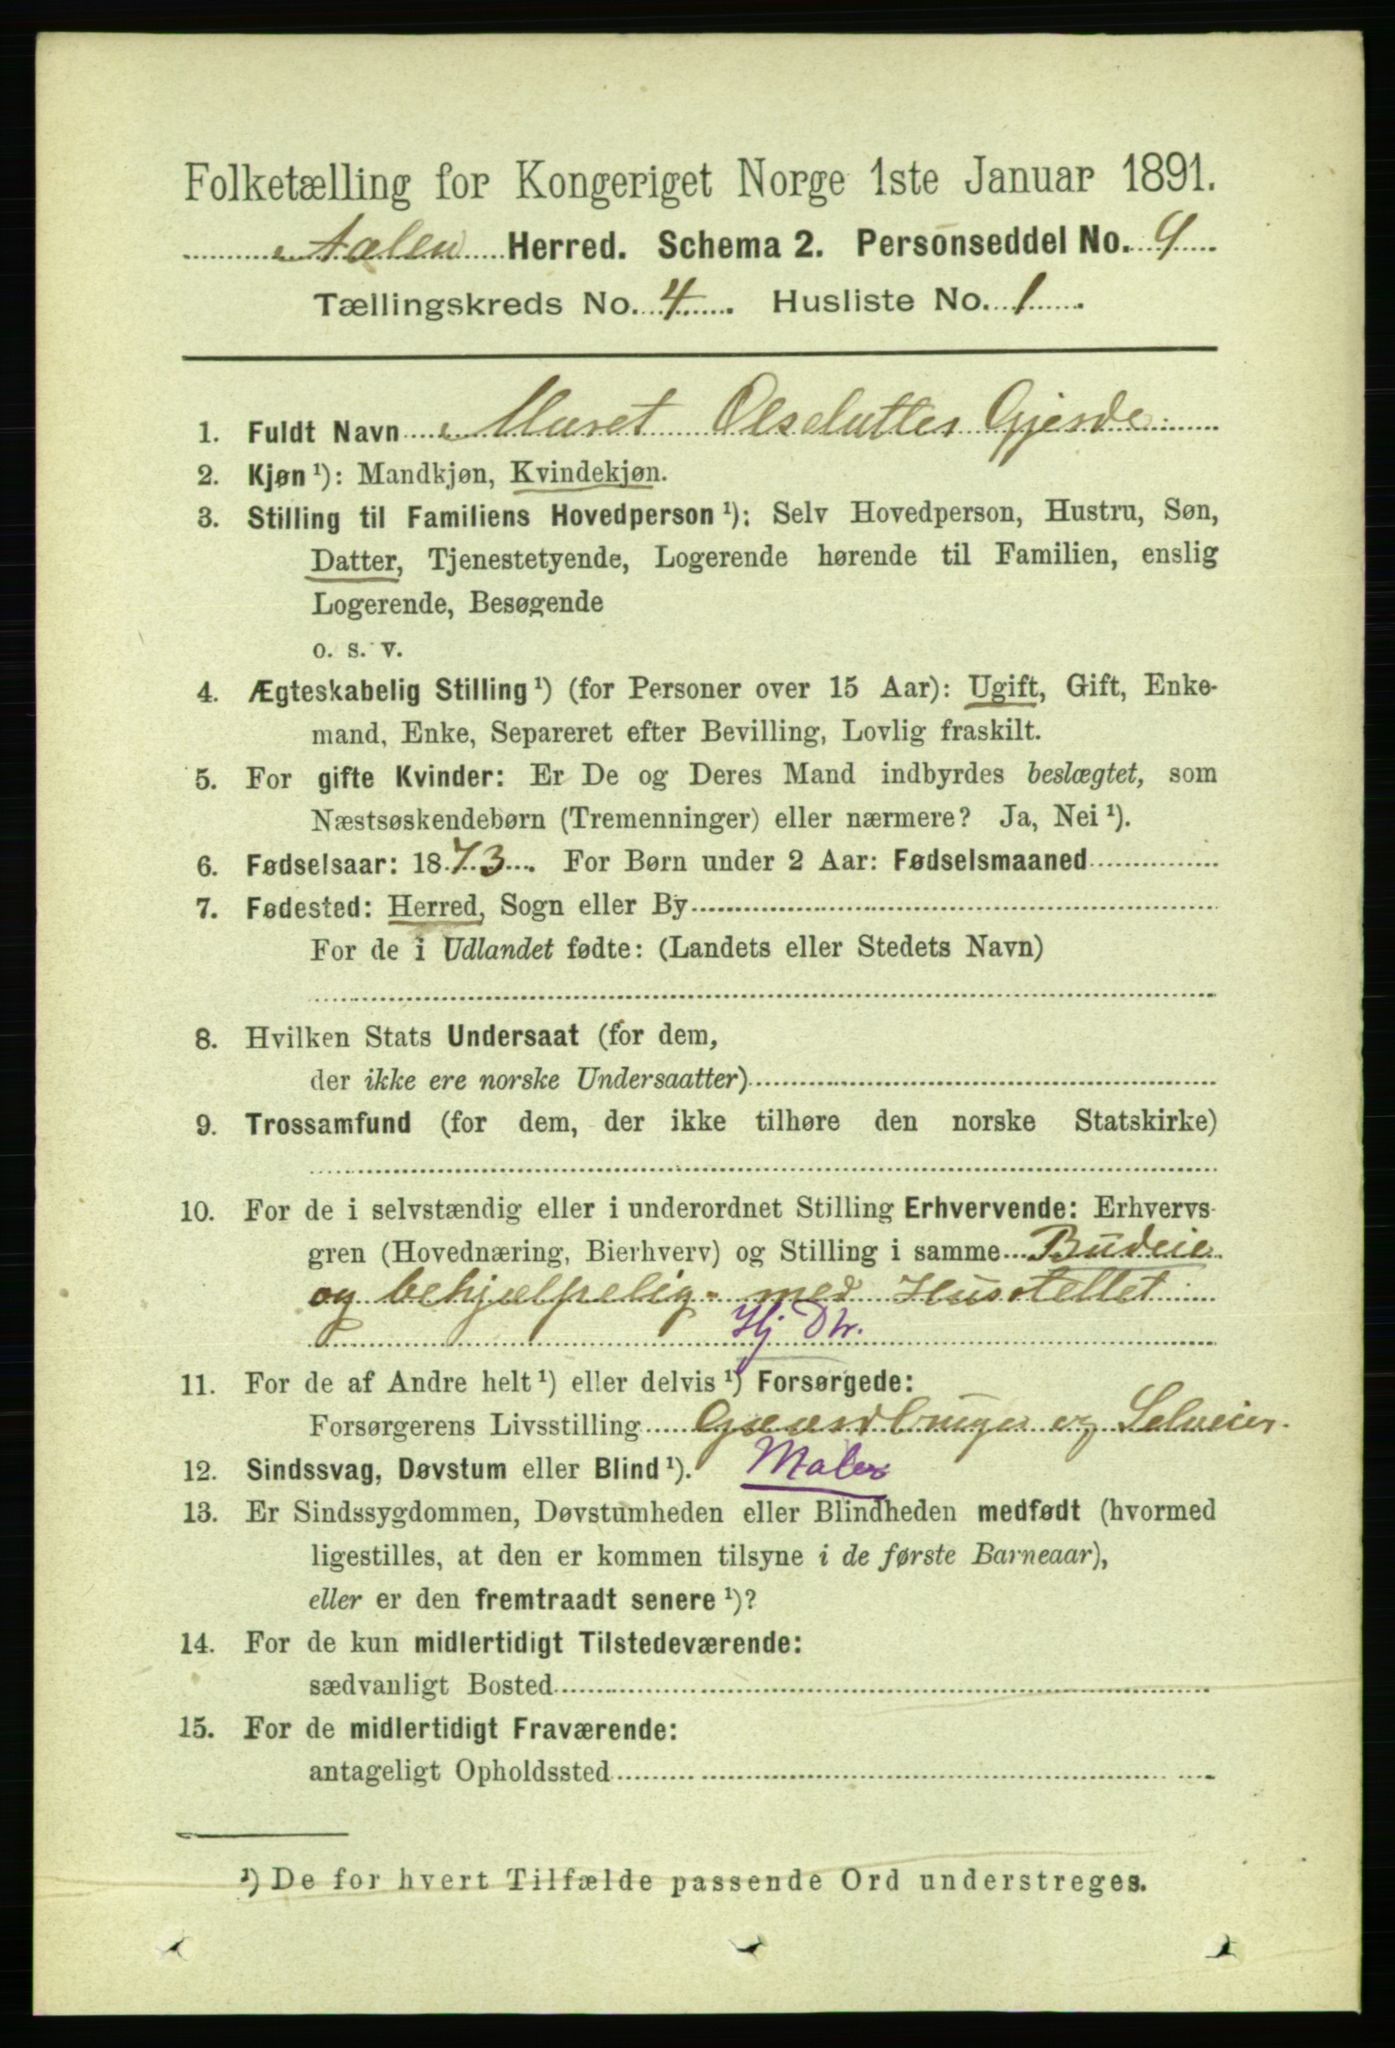 Folketælling for Kongeriget Norge 1ste Januar 1891.
Aalen Herred. Schema 2. Personseddel No. 9
Tællingskreds No. 4. Husliste No. 1.
1. Fuldt Navn Maret Olsdatter Gjerde.
2. Kjøn ¹): Mandkjøn, Kvindekjøn.
3. Stilling til Familiens Hovedperson ¹): Selv Hovedperson, Hustru, Søn,
Datter, Tjenestetyende, Logerende hørende til Familien, enslig
Logerende, Besøgende
o. s. v.
4. Ægteskabelig Stilling ¹) (for Personer over 15 Aar): Ugift, Gift, Enke-
mand, Enke, Separeret efter Bevilling, Lovlig fraskilt.
5. For gifte Kvinder: Er De og Deres Mand indbyrdes beslægtet, som
Næstsøskendebørn (Tremenninger) eller nærmere? Ja, Nei ¹).
6. Fødselsaar: 1873. For Børn under 2 Aar: Fødselsmaaned
7. Fødested: Herred, Sogn eller By
For de i Udlandet fødte: (Landets eller Stedets Navn)
8. Hvilken Stats Undersaat (for dem,
der ikke ere norske Undersaatter)
9. Trossamfund (for dem, der ikke tilhøre den norske Statskirke)
10. For de i selvstændig eller i underordnet Stilling Erhvervende: Erhvervs-
gren (Hovednæring, Bierhverv) og Stilling i samme Budeie
og behjælpelig med Husstellet
Hj Dtr.
11. For de af Andre helt ¹) eller delvis ¹) Forsørgede:
Forsørgerens Livsstilling Gaardbruger og Selveier.
12. Sindssvag, Døvstum eller Blind ¹). Maler
13. Er Sindssygdommen, Døvstumheden eller Blindheden medfødt (hvormed
ligestilles, at den er kommen tilsyne i de første Barneaar),
eller er den fremtraadt senere ¹)?
14. For de kun midlertidigt Tilstedeværende:
sædvanligt Bosted
15. For de midlertidigt Fraværende:
antageligt Opholdssted
¹) De for hvert Tilfælde passende Ord understreges.